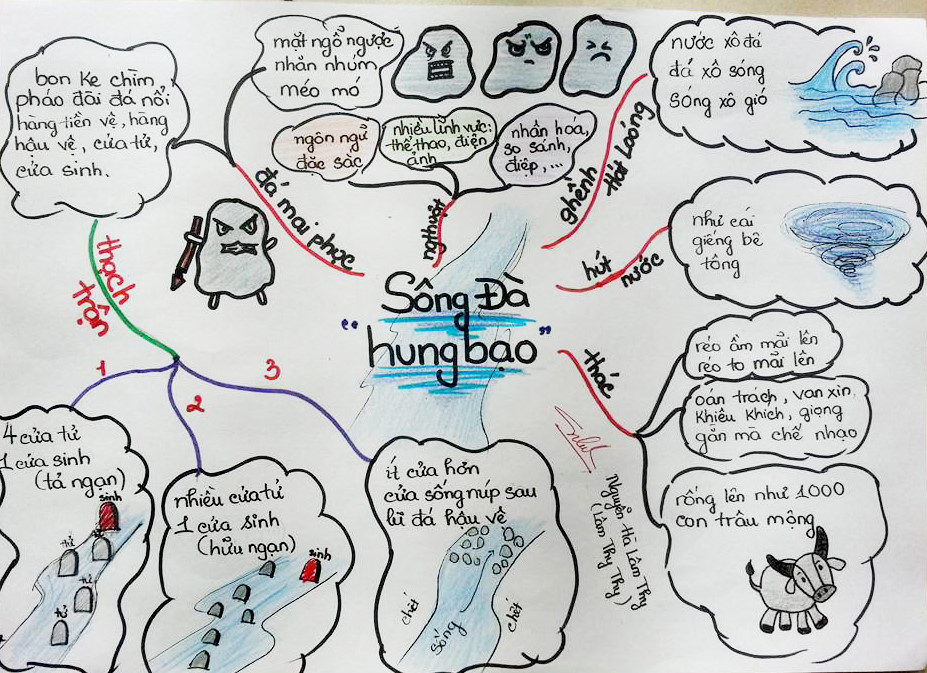 Sông Đà
"hung bạo"
đá mai phục
mặt ngổ ngược
nhăn nhúm
méo mó
bon ke chìm,
pháo đài đá nổi
hàng tiền vệ, hàng
hậu vệ, cửa tử,
cửa sinh.
ngthuật
ngôn ngữ
đặc sắc
nhiều lĩnh vực:
thể thao, điện
ảnh
nhân hóa,
so sánh,
điệp, ...
ghềnh
Hát Loóng
nước xô đá
đá xô sóng
sóng xô gió
hút
nước
như cái
giếng bê
tông
thác
réo ầm mãi lên
réo to mãi lên
oán trách, van xin,
khiêu khích, giọng
gằn mà chế nhạo
rống lên như 1000
con trâu mộng
Nguyễn Hà Lâm Thy
(Lâm Thy Thy)
thạch
trận
1
4 cửa tử
1 cửa sinh
(tả ngạn)
sinh
tử
tử
tử
2
nhiều cửa tử
1 cửa sinh
(hữu ngạn)
sinh
3
ít cửa hơn
cửa sống núp sau
lũ đá hậu vệ
chết
sống
chết